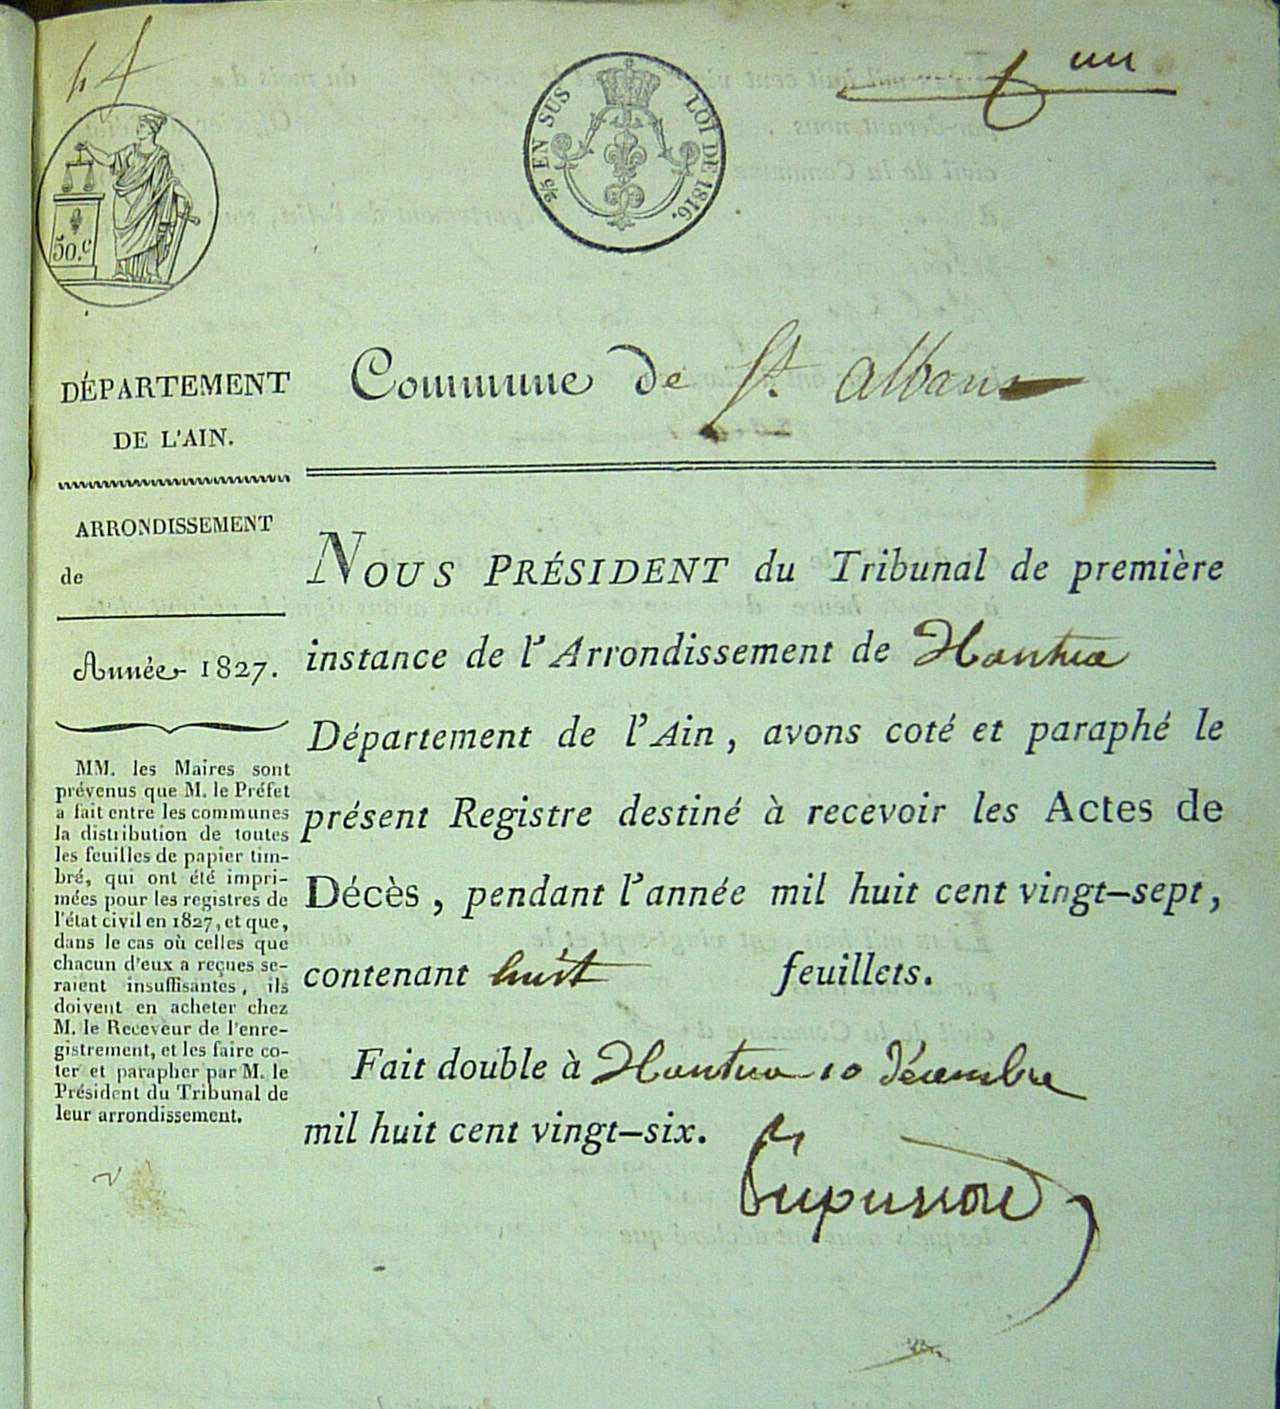 un
2/5 EN SUS LOI DE 1816.
50.c
DÉPARTEMENT
DE L'AIN.
ARRONDISSEMENT
de
Année 1827.
MM. les Maires sont
prévenus que M. le Préfet
a fait entre les communes
la distribution de toutes
les feuilles de papier tim-
bré, qui ont été impri-
mées pour les registres de
l'état civil en 1827, et que,
dans le cas où celles que
chacun d'eux a reçues se-
raient insuffisantes, ils
doivent en acheter chez
M. le Receveur de l'enre-
gistrement, et les faire co-
ter et parapher par M. le
Président du Tribunal de
leur arrondissement.
Commune de St. Alban
NOUS PRÉSIDENT du Tribunal de première
instance de l'Arrondissement de Nantua
Département de l'Ain, avons coté et paraphé le
présent Registre destiné à recevoir les Actes de
Décès, pendant l'année mil huit cent vingt-sept,
contenant huit feuillets.
Fait double à Nantua 10 décembre
mil huit cent vingt-six.